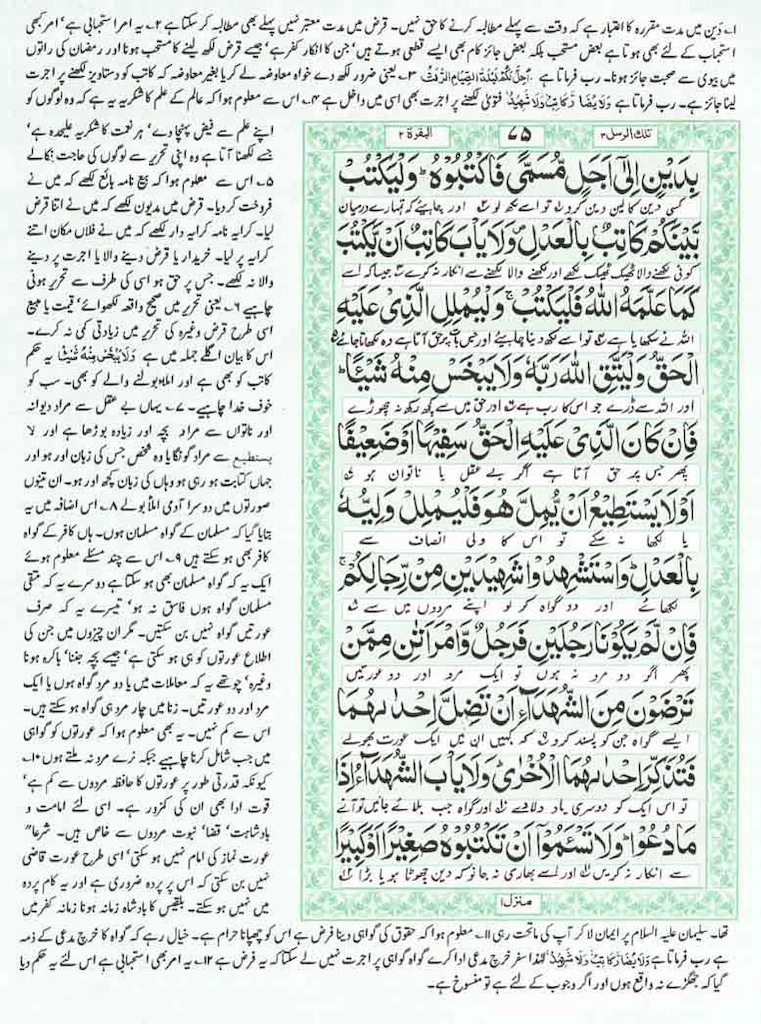 ۱؎ دَین میں مدت مقررہ کا اعتبار ہے کہ وقت سے پہلے مطالبہ کرنے کا حق نہیں۔ قرض میں مدت معتبر نہیں پہلے بھی مطالبہ کر سکتا ہے ۲؎ یہ امر استحبابی ہے' امر کبھی
استحباب کے لئے بھی ہوتا ہے بعض مستحب بلکہ بعض جائز کام بھی ایسے قطعی ہوتے ہیں' جن کا انکار کفر ہے' جیسے قرض لکھ لینے کا مستحب ہونا اور رمضان کی راتوں
میں بیوی سے صحبت جائز ہونا۔ رب فرماتا ہے۔ اُحِلَّ لَكُمْ لَيْلَةَ الصِّيَامِ الرَّفَثُ ۳؎ یعنی ضرور لکھ دے خواہ معاوضہ لے کر یا بغیر معاوضہ کہ کاتب کو دستاویز لکھنے پر اجرت
لینا جائز ہے۔ رب فرماتا ہے وَلَا يُضَآرَّ كَاتِبٌ وَّلَا شَهِيْدٌ فتویٰ لکھنے پر اجرت بھی اسی میں داخل ہے ۴؎ اس سے معلوم ہوا کہ عالم کے علم کا شکریہ یہ ہے کہ وہ لوگوں کو
تلك الرسل ۳
۷۵
البقرة ۲
بِدَيْنٍ اِلٰۤى اَجَلٍ مُّسَمًّى فَاكْتُبُوْهُ ؕ وَلْيَكْتُبْ
کسی دین کا لین دین کرو تو اسے لکھ لو اور چاہئے کہ تمہارے درمیان
بَّيْنَكُمْ كَاتِبٌۢ بِالْعَدْلِ ۪ وَلَا يَاْبَ كَاتِبٌ اَنْ يَّكْتُبَ
کوئی لکھنے والا ٹھیک ٹھیک لکھے اور لکھنے والا لکھنے سے انکار نہ کرے جیسا کہ اسے
كَمَا عَلَّمَهُ اللّٰهُ فَلْيَكْتُبْ ۚ وَلْيُمْلِلِ الَّذِيْ عَلَيْهِ
اللہ نے سکھایا ہے تو اسے لکھ دینا چاہیئے اور جس بات پر حق آتا ہے وہ لکھاتا جائے
الْحَقُّ وَلْيَتَّقِ اللّٰهَ رَبَّهٗ وَلَا يَبْخَسْ مِنْهُ شَيْـًٔا ؕ
اور اللہ سے ڈرے جو اس کا رب ہے اور حق میں سے کچھ رکھ نہ چھوڑے
فَاِنْ كَانَ الَّذِيْ عَلَيْهِ الْحَقُّ سَفِيْهًا اَوْ ضَعِيْفًا
پھر جس پر حق آتا ہے اگر بے عقل یا ناتوان ہو
اَوْ لَا يَسْتَطِيْعُ اَنْ يُّمِلَّ هُوَ فَلْيُمْلِلْ وَلِيُّهٗ
یا لکھا نہ سکے تو اس کا ولی انصاف سے
بِالْعَدْلِ ؕ وَاسْتَشْهِدُوْا شَهِيْدَيْنِ مِنْ رِّجَالِكُمْ ۚ
لکھائے اور دو گواہ کر لو اپنے مردوں میں سے
فَاِنْ لَّمْ يَكُوْنَا رَجُلَيْنِ فَرَجُلٌ وَّامْرَاَتٰنِ مِمَّنْ
پھر اگر دو مرد نہ ہوں تو ایک مرد اور دو عورتیں
تَرْضَوْنَ مِنَ الشُّهَدَآءِ اَنْ تَضِلَّ اِحْدٰىهُمَا
ایسے گواہ جن کو پسند کرو کہ کہیں ان میں ایک عورت بھولے
فَتُذَكِّرَ اِحْدٰىهُمَا الْاُخْرٰى ؕ وَلَا يَاْبَ الشُّهَدَآءُ اِذَا
تو اس ایک کو دوسری یاد دلا دے اور گواہ جب بلائے جائیں تو آنے
مَا دُعُوْا ؕ وَلَا تَسْـَٔمُوْۤا اَنْ تَكْتُبُوْهُ صَغِيْرًا اَوْ كَبِيْرًا
سے انکار نہ کریں اور اسے بھاری نہ جانو کہ دین چھوٹا ہو یا بڑا
منزل ۱
اپنے علم سے فیض پہنچا دے' ہر نعمت کا شکریہ علیحدہ ہے'
جسے لکھنا آتا ہے وہ اپنی تحریر سے لوگوں کی حاجت نکالے
۵؎ اس سے معلوم ہوا کہ بیع نامہ بائع لکھے کہ میں نے
فروخت کر دیا۔ قرض میں مدیون لکھے کہ میں نے اتنا قرض
لیا۔ کرایہ نامہ کرایہ دار لکھے کہ میں نے فلاں مکان اتنے
کرایہ پر لیا۔ خریدار یا قرض دینے والا یا اجرت پر دینے
والا نہ لکھے۔ جس پر حق ہو اسی کی طرف سے تحریر ہونی
چاہیے ۶؎ یعنی تحریر میں صحیح واقعہ لکھوائے' قیمت یا مبیع
اسی طرح قرض وغیرہ کی تحریر میں زیادتی کمی نہ کرے۔
اس کا بیان اگلے جملہ میں ہے وَلَا يَبْخَسْ مِنْهُ شَيْئًا یہ حکم
کاتب کو بھی ہے اور املا بولنے والے کو بھی۔ سب کو
خوف خدا چاہیے۔ ۷؎ یہاں بے عقل سے مراد دیوانہ
اور ناتواں سے مراد بچہ اور زیادہ بوڑھا ہے اور لا
یستطیع سے مراد گونگا یا وہ شخص جس کی زبان اور ہو اور
جہاں کتابت ہو رہی ہو وہاں کی زبان کچھ اور ہو۔ ان تینوں
صورتوں میں دوسرا آدمی املا بولے ۸؎ اس اضافہ میں یہ
بتایا گیا کہ مسلمان کے گواہ مسلمان ہوں۔ ہاں کافر کے گواہ
کافر بھی ہو سکتے ہیں ۹؎ اس سے چند مسئلے معلوم ہوئے
ایک یہ کہ گواہ مسلمان بھی ہو سکتا ہے دوسرے یہ کہ متقی
مسلمان گواہ ہوں فاسق نہ ہو' تیسرے یہ کہ صرف
عورتیں گواہ نہیں بن سکتیں۔ مگر ان چیزوں میں جن کی
اطلاع عورتوں کو ہی ہو سکتی ہے' جیسے بچہ جننا' باکرہ ہونا
وغیرہ' چوتھے یہ کہ معاملات میں یا دو مرد گواہ ہوں یا ایک
مرد اور دو عورتیں۔ زنا میں چار مرد ہی گواہ ہو سکتے ہیں۔
اس سے کم نہیں۔ یہ بھی معلوم ہوا کہ عورتوں کو گواہی
میں جب شامل کرنا چاہیے جبکہ نرے مرد نہ ملتے ہوں ۱۰؎
کیونکہ قدرتی طور پر عورتوں کا حافظہ مردوں سے کم ہے'
قوت ادا بھی ان کی کمزور ہے۔ اسی لئے امامت و
بادشاہت' قضا' نبوت مردوں سے خاص ہیں۔ شرعاً"
عورت نماز کی امام نہیں ہو سکتی' اسی طرح عورت قاضی
نہیں بن سکتی کہ اس پر پردہ ضروری ہے اور یہ کام پردہ
میں نہیں ہو سکتے۔ بلقیس کا بادشاہ زمانہ ہونا زمانہ کفر میں
تھا۔ سلیمان علیہ السلام پر ایمان لا کر آپ کی ماتحت رہی ۱۱؎ معلوم ہوا کہ حقوق کی گواہی دینا فرض ہے اس کو چھپانا حرام ہے۔ خیال رہے کہ گواہ کا خرچ مدعی کے ذمہ
ہے رب فرماتا ہے وَلَا يُضَآرَّ كَاتِبٌ وَّلَا شَهِيْدٌ لہٰذا سفر خرچ مدعی ادا کرے گواہ گواہی پر اجرت نہیں لے سکتا کہ یہ فرض ہے ۱۲؎ یہ امر بھی استحبابی ہے اس لئے یہ حکم دیا
گیا کہ جھگڑے نہ واقع ہوں اور اگر وجوب کے لئے ہے تو منسوخ ہے۔